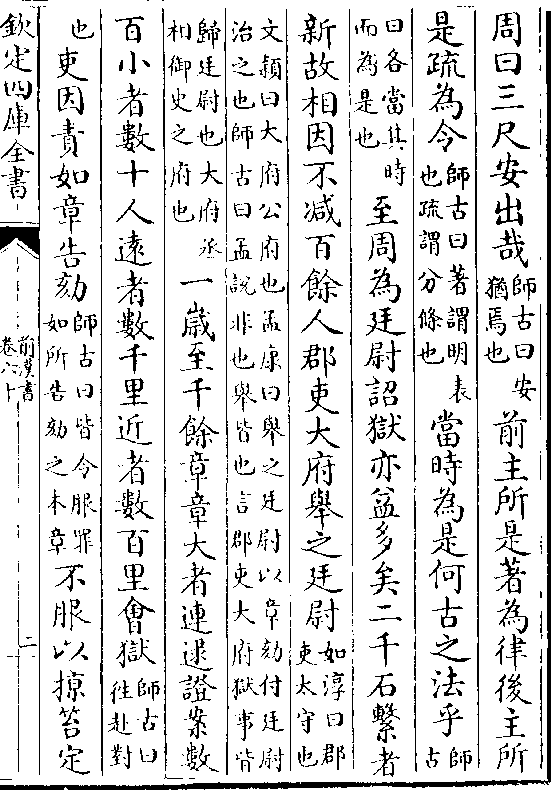 周曰三尺安出哉師古曰安猶焉也前主所是著為律後主所
是疏為令師古曰著謂明表也疏謂分條也當時為是何古之法乎師古
曰各當其時而為是也至周為廷尉詔獄亦益多矣二千石繫者
新故相因不減百餘人郡吏大府舉之廷尉如淳曰郡吏太守也
文穎曰大府公府也孟康曰舉之廷尉以章劾付廷尉治之也師古曰孟說非也舉皆也言郡吏大府獄事皆
歸廷尉也大府丞相御史之府也一歲至千餘章章大者連逮證案數
百小者數十人遠者數千里近者數百里會獄師古曰往赴對
也吏因責如章告劾師古曰皆令服罪如所告劾之本章不服以掠笞定
欽定四庫全書
前漢書
卷六十
二